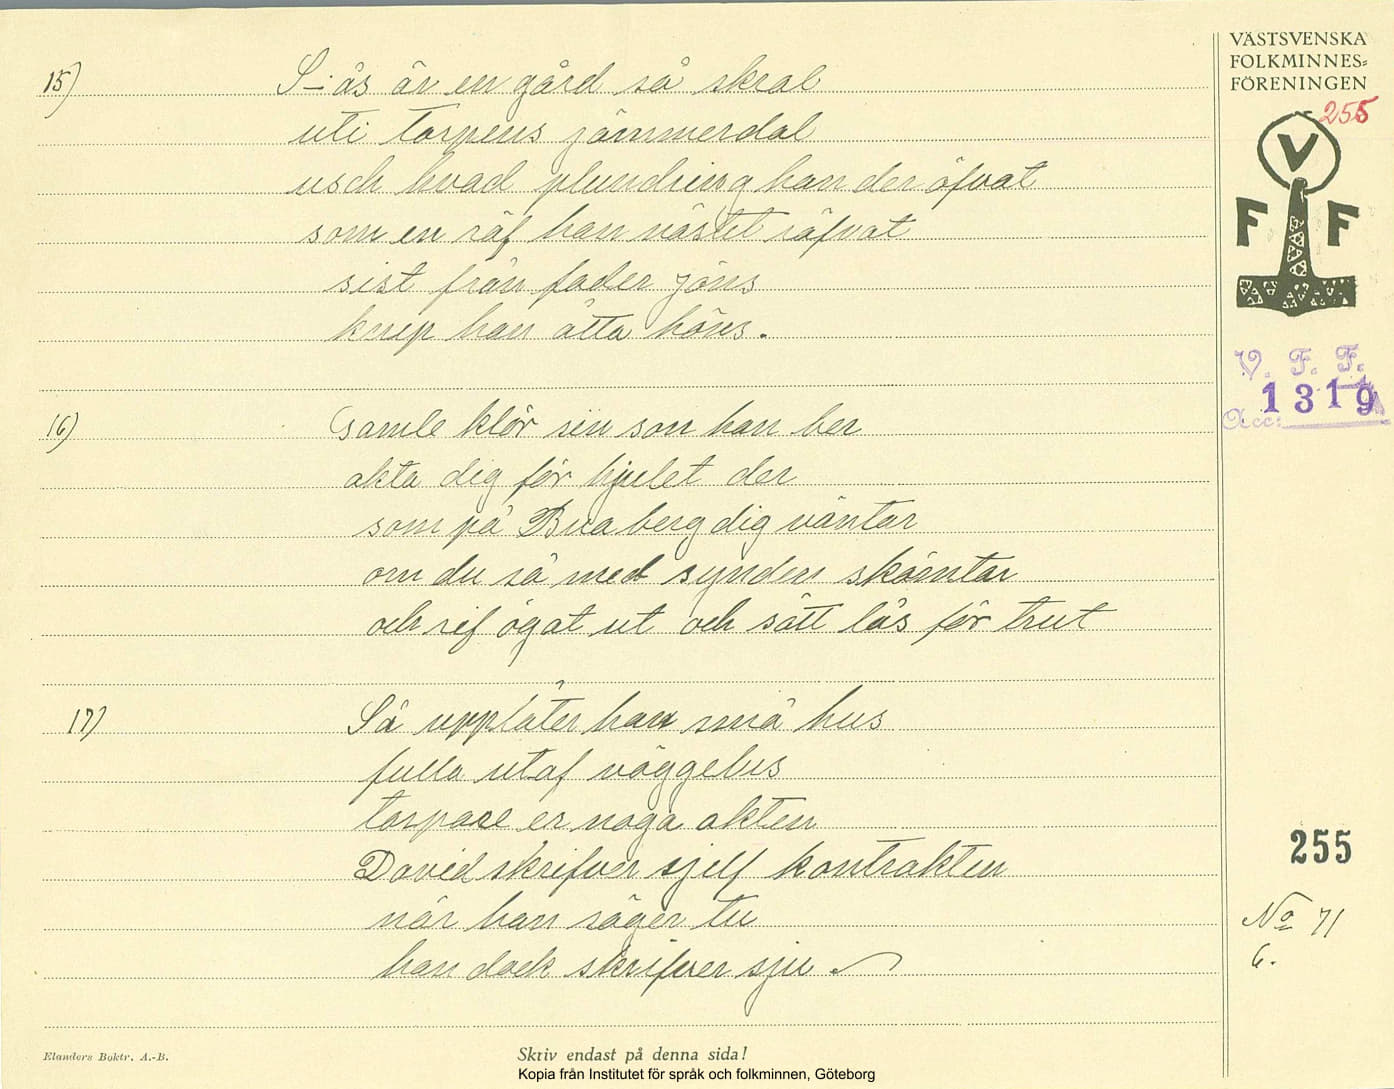 VÄSTSVENSKA
FOLKMINNES=
FÖRENINGEN
255
V
F F
V. F. F.
1319
Acc:
15) S-ås är en gård så skral
uti torpens jämmerdal
usch hvad plundring han der öfvat
som en räf han nästet räfvat
sist från fader Jöns
knep han åtta höns.
16) Gamle klör sin son han ber
akta dig för hjulet der
som på Bua berg dig väntar
om du så med synden skämtar
och rif ögat ut och sätt lås för trut
17) Så upplåter han små hus
fulla utaf väggelus
torpare er noga akten
David skrifver sjelf kontrakten
när han säger tu
han dock skrifver sju.
255
No 71
6.
Elanders Boktr. A.-B.
Skriv endast på denna sida!
Kopia från Institutet för språk och folkminnen, Göteborg